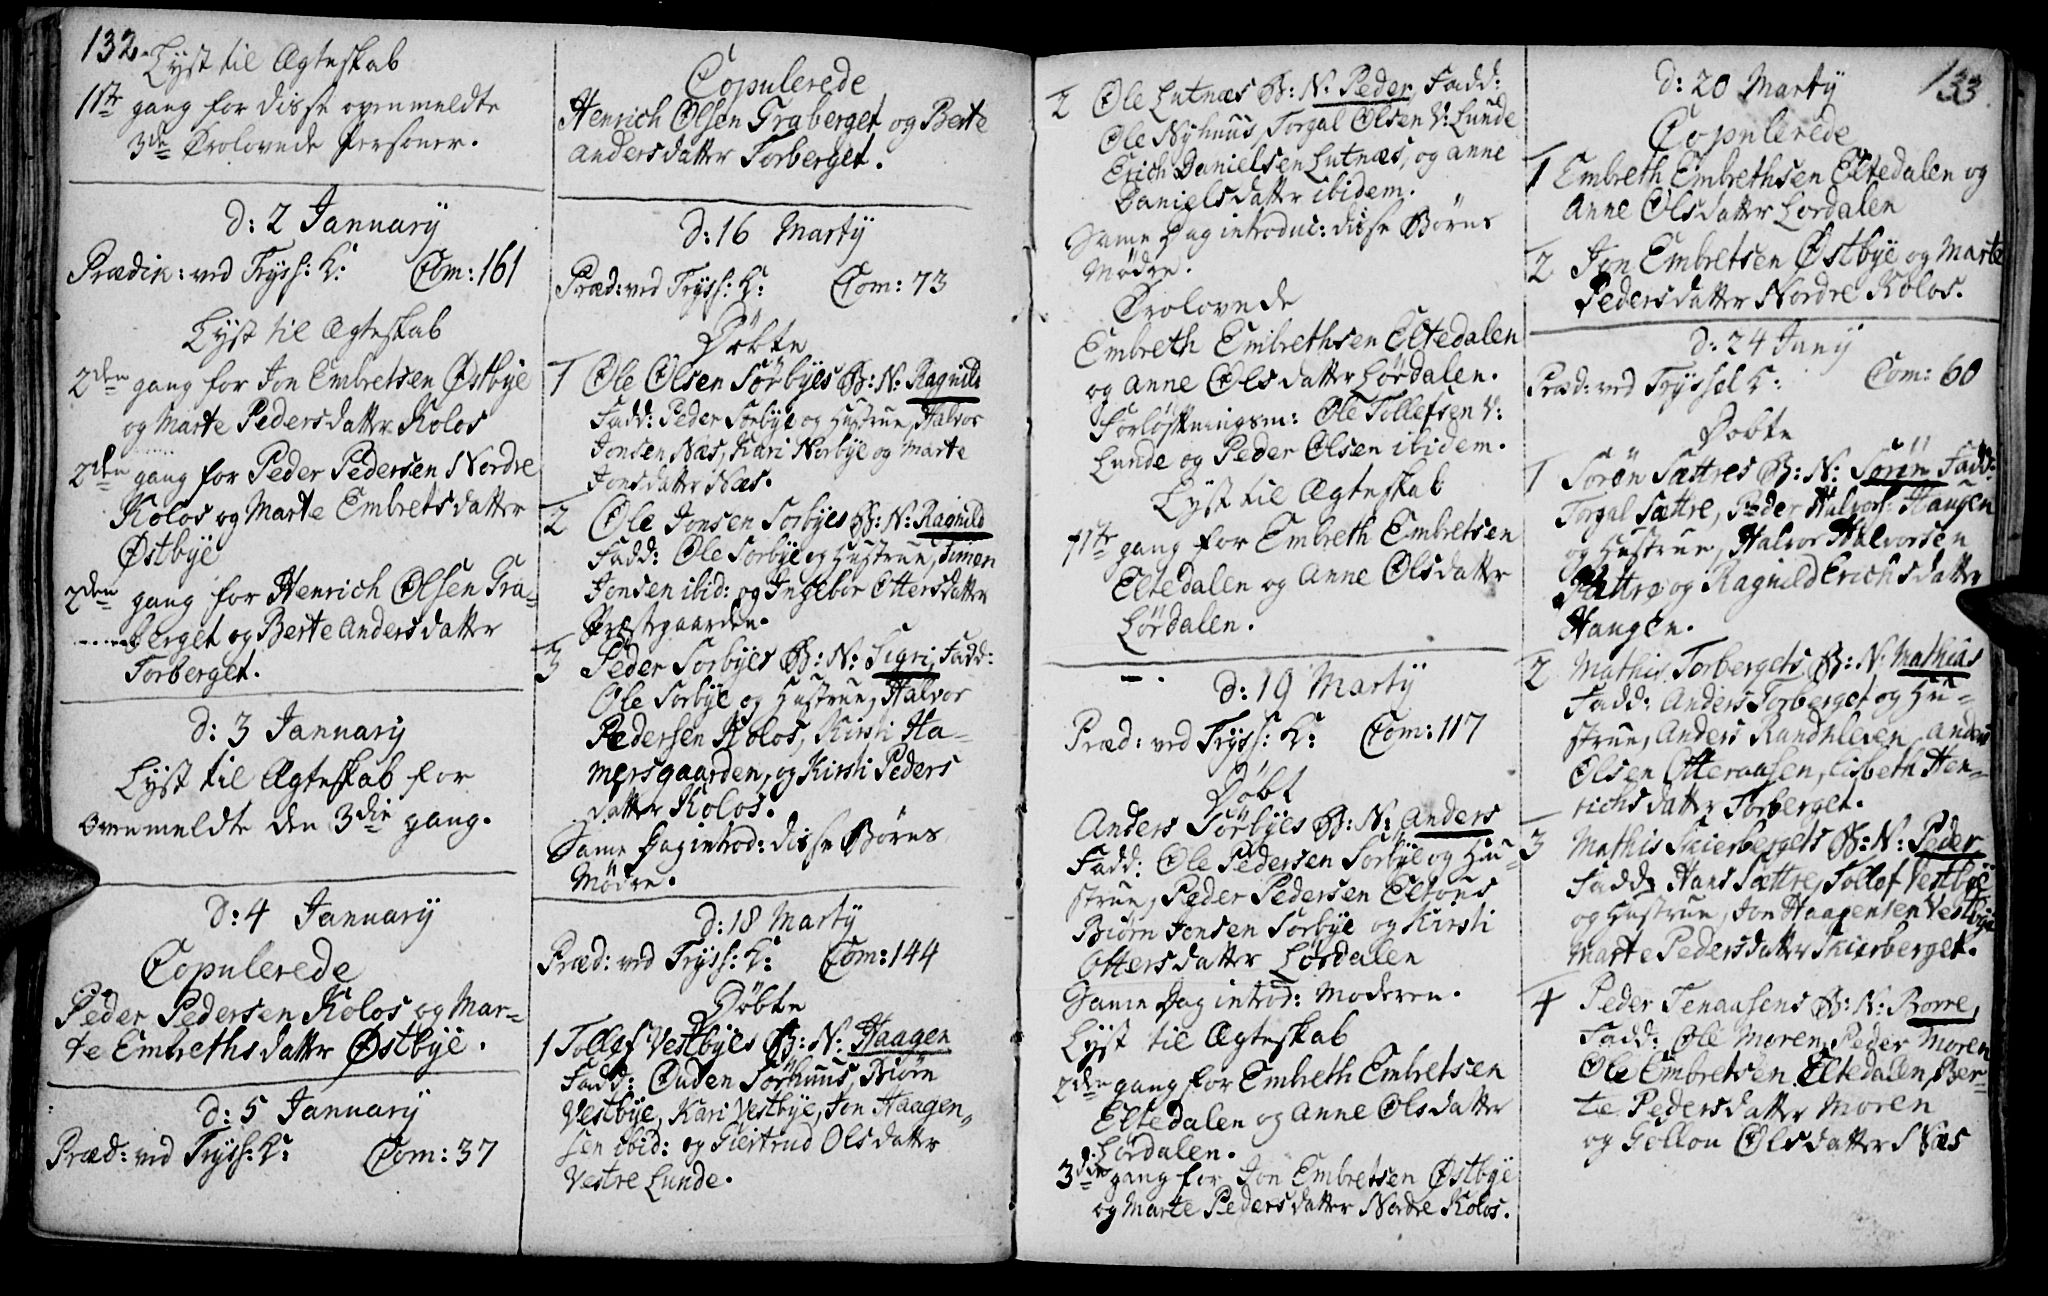 132.
Lyst til Ægteskab
1ste gang for disse ovenmeldte
3de Trolovede Personer.
d: 2 Januarÿ
Prædik: ved Tryss: K: Com: 161
Lyst til Ægteskab
2den gang for Jon Embretsen Østbÿe
og Marte Pedersdatter Kolos
2den gang for Peder Pedersen Nordre
Kolos og Marte Embretsdatter
Østbÿe
2den gang for Henrich Olsen Tra-
berget og Berte Andersdatter
Torberget.
d: 3 Januarÿ
Lyst til Ægteskab for
ovenmeldte den 3die gang.
d: 4 Januarÿ
Copulerede
Peder Pedersen Kolos og Mar-
te Embrethsdatter Østbÿe.
d: 5 Januarÿ
Præd: ved Tryss: K: Com: 37
Copulerede
Henrich Olsen Traberget og Berte
Andersdatter Torberget.
d: 16 Martÿ
Præd: ved Tryss: K: Com: 73
Døbte
1 Ole Olsen Sörbÿes B: N: Ragnild
Fadd: Peder Sorbÿe og Hustrue, Halvor
Jonsen Næs, Kari Norbÿe og Marte
Jonsdatter Næs.
2 Ole Jonsen Sorbÿes B: N: Ragnild
Fadd: Ole Sorbÿe og Hustrue, Simen
Jonsen ibid: og Ingebor Ottersdatter
Præstegaarden.
3 Peder Sorbÿes B: N: Sigri, Fadd:
Ole Sorbÿe og Hustrue, Halvor
Pedersen Kolos, Kirsti Ha-
mersgaarden, og Kirsti Peders
datter Kolos.
Same Dag introd: disse Børns
Mødre.
d: 18 Martÿ
Præd: ved Tryss: K: Com: 144
Døbte
1 Tollef Vestbÿes B: N: Haagen
Fadd: Ouden Sörhuus, Biörn
Vestbÿe, Kari Vestbÿe, Jon Haagen-
sen ibid: og Giertrud Olsdatter
Vestre Lunde.
2 Ole Lutnæs B: N: Peder, Fadd:
Ole Nÿhuus, Torgal Olsen V: Lunde
Erich Danielsen Lutnæs, og Anne
Danielsdatter ibidem.
Same Dag introduc: disse Børns
Mødre.
Trolovede
Embreth Embrethsen Eltedalen
og Anne Olsdatter Lördalen.
Forløftningsm: Ole Tollefsen V:
Lunde og Peder Olsen ibidem.
Lyst til Ægteskab
1ste gang for Embreth Embretsen
Eltedalen og Anne Olsdatter
Lördalen.
d: 19 Martÿ
Præd: ved Tryss: K: Com: 117
Døbt
Anders Sörbÿes B: N: Anders
Fadd: Ole Pedersen Sorbÿe og Hu-
strue, Peder Pedersen Eltous
Biörn Jonsen Sorbÿe og Kirsti
Ottersdatter Lördalen
Same Dag introd: Moderen.
Lyst til Ægteskab
2den gang for Embreth Embretsen
Eltedalen og Anne Olsdatter
Lördalen.
3die gang for Jon Embretsen Østbÿe
og Marte Pedersdatter Nordre Kolos.
133
d: 20 Martÿ
Copulerede
1 Embreth Embrethsen Eltedalen og
Anne Olsdatter Lordalen
2 Jon Embretsen Østbÿe og Marte
Pedersdatter Nordre Kolos.
d: 24 Junÿ
Præd: ved Tryssel K: Com: 60
Døbte
1 Sorön Sættres B: N: Sörin Fadd:
Torgal Sættre, Peder Halvors: Haugen
og Hustrue, Halvor Halvorsen
Sættre og Ragnild Erichsdatter
Haugen.
2 Mathis Torbergets B: N: Mathias
Fadd: Anders Torberget og Hu-
strue, Anders Randkleven, Anders
Olsen Otteraasen, Lisbeth Hen-
richsdatter Torberget.
3 Mathis Skierbergets B: N: Peder
Fadd: Hans Sættre, Tollof Vestbÿe
og Hustrue, Jon Haagensen Vestbÿe
Marte Pedersdatter Skierberget.
4 Peder Tenaasens B: N: Borre,
Fadd: Ole Moren, Peder Moren
Ole Embretsen Eltedalen, Ber-
te Pedersdatter Moren
og Gollou Olsdatter Næs